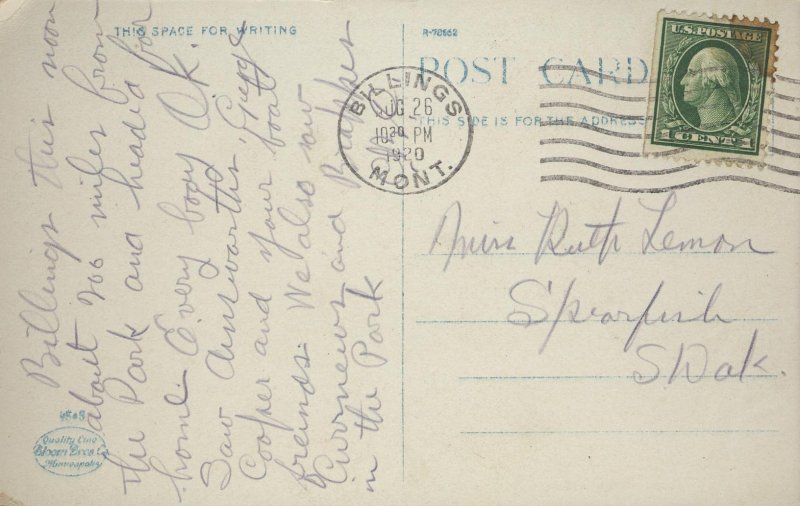 THIS SPACE FOR WRITING
R-70562
POST CARD
THIS SIDE IS FOR THE ADDRESS
U.S. POSTAGE
1 CENT 1
BILLINGS
AUG 26
10 30 PM
1920
MONT.
Billings this noon
about 200 miles from
the Park and headed for
home. Every body O.K.
Saw Ainsworths,
Cooper and your boat
freinds. We also saw
and
in the Park
Miss Ruth Lemon
Spearfish
S Dak.
Quality Line
Bloom Bros. Co.
Minneapolis